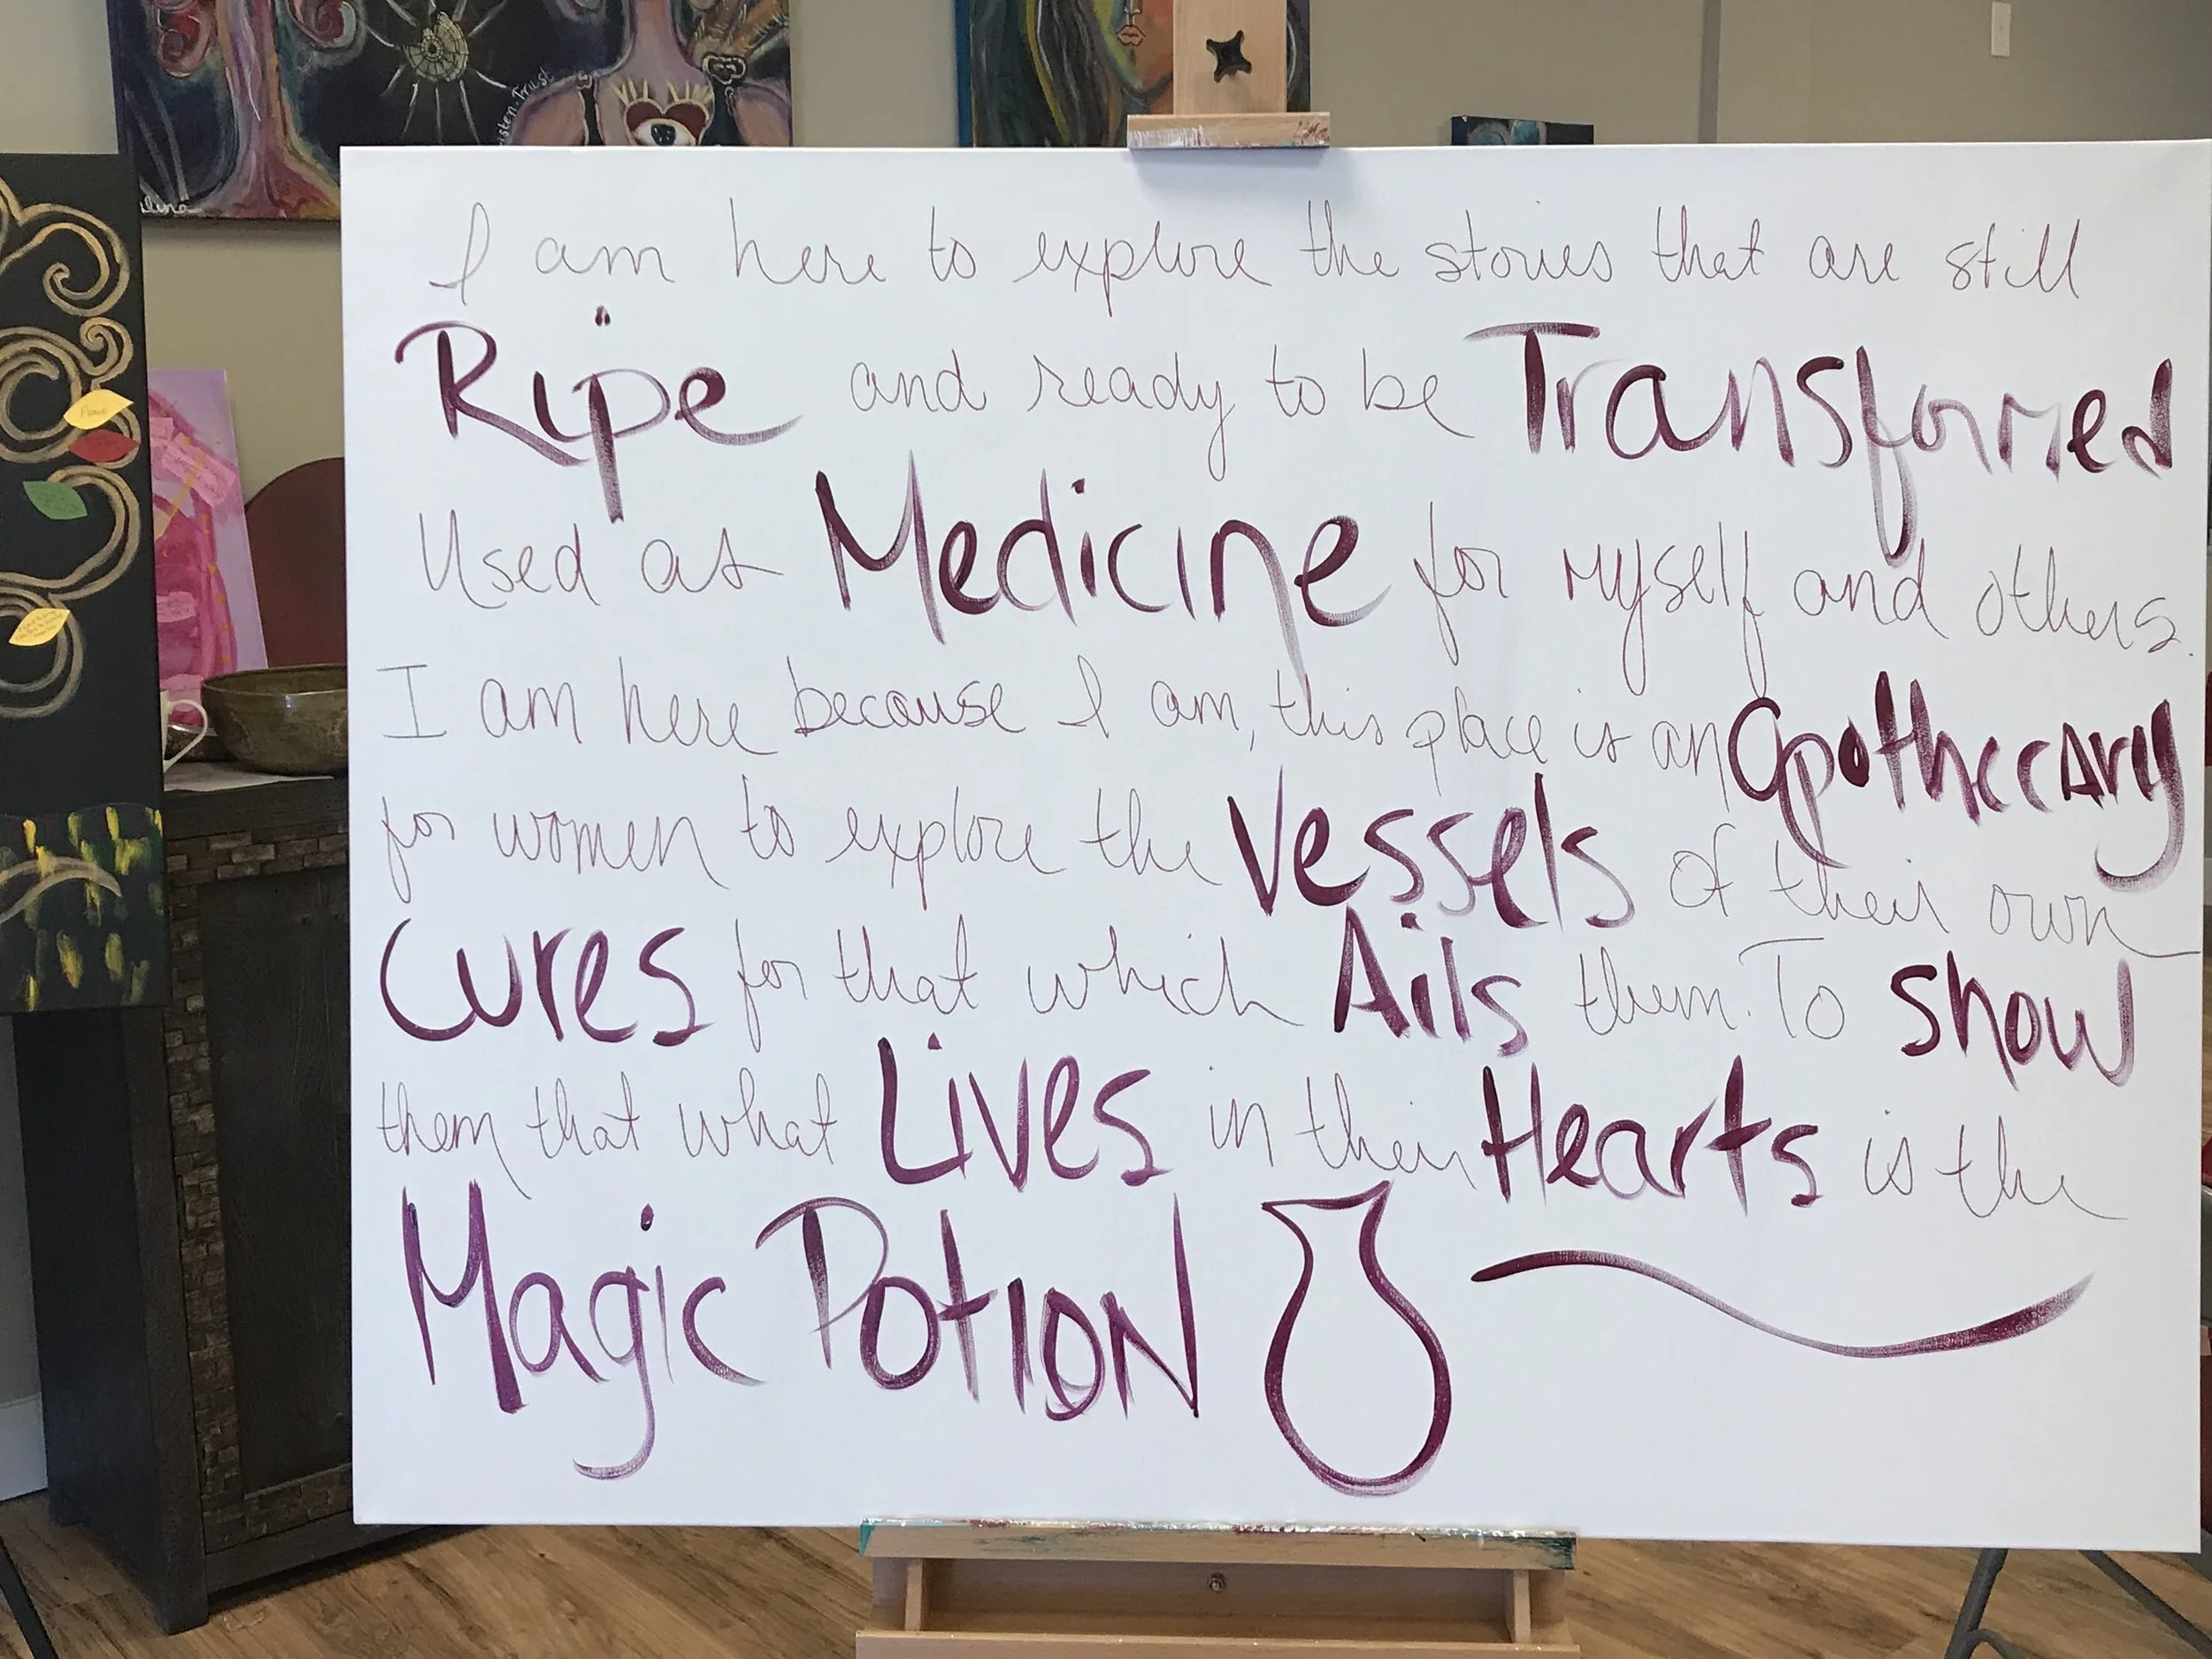 isten. Trust
Ilina
Peace
I am here to explore the stories that are still
Ripe and ready to be Transformed
Used as Medicine for myself and others.
I am here because I am, this place is an Apothecary
for women to explore the Vessels of their own
Cures for that which Ails them. To show
them that what Lives in their Hearts is the
Magic Potion